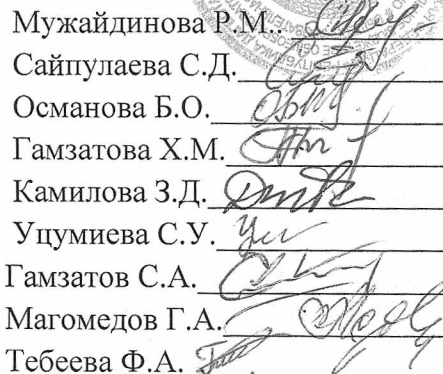 Мужайдинова Р.М.
Сайпулаева С.Д.
Османова Б.О.
Гамзатова Х.М.
Камилова З.Д.
Уцумиева С.У.
Гамзатов С.А.
Магомедов Г.А.
Тебеева Ф.А.